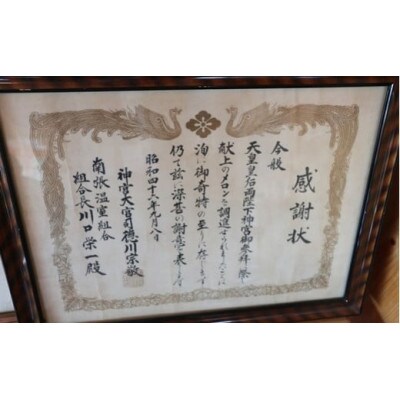 感謝状
今般
天皇皇后両陛下神宮御参拝に際し
献上のメロンを調進せられましたことは
洵に御奇特の至りに存じます
仍て茲に深甚の謝意を表します
昭和四十八年九月八日
神宮大宮司徳川宗敬
南張温室組合
組合長川口栄一殿